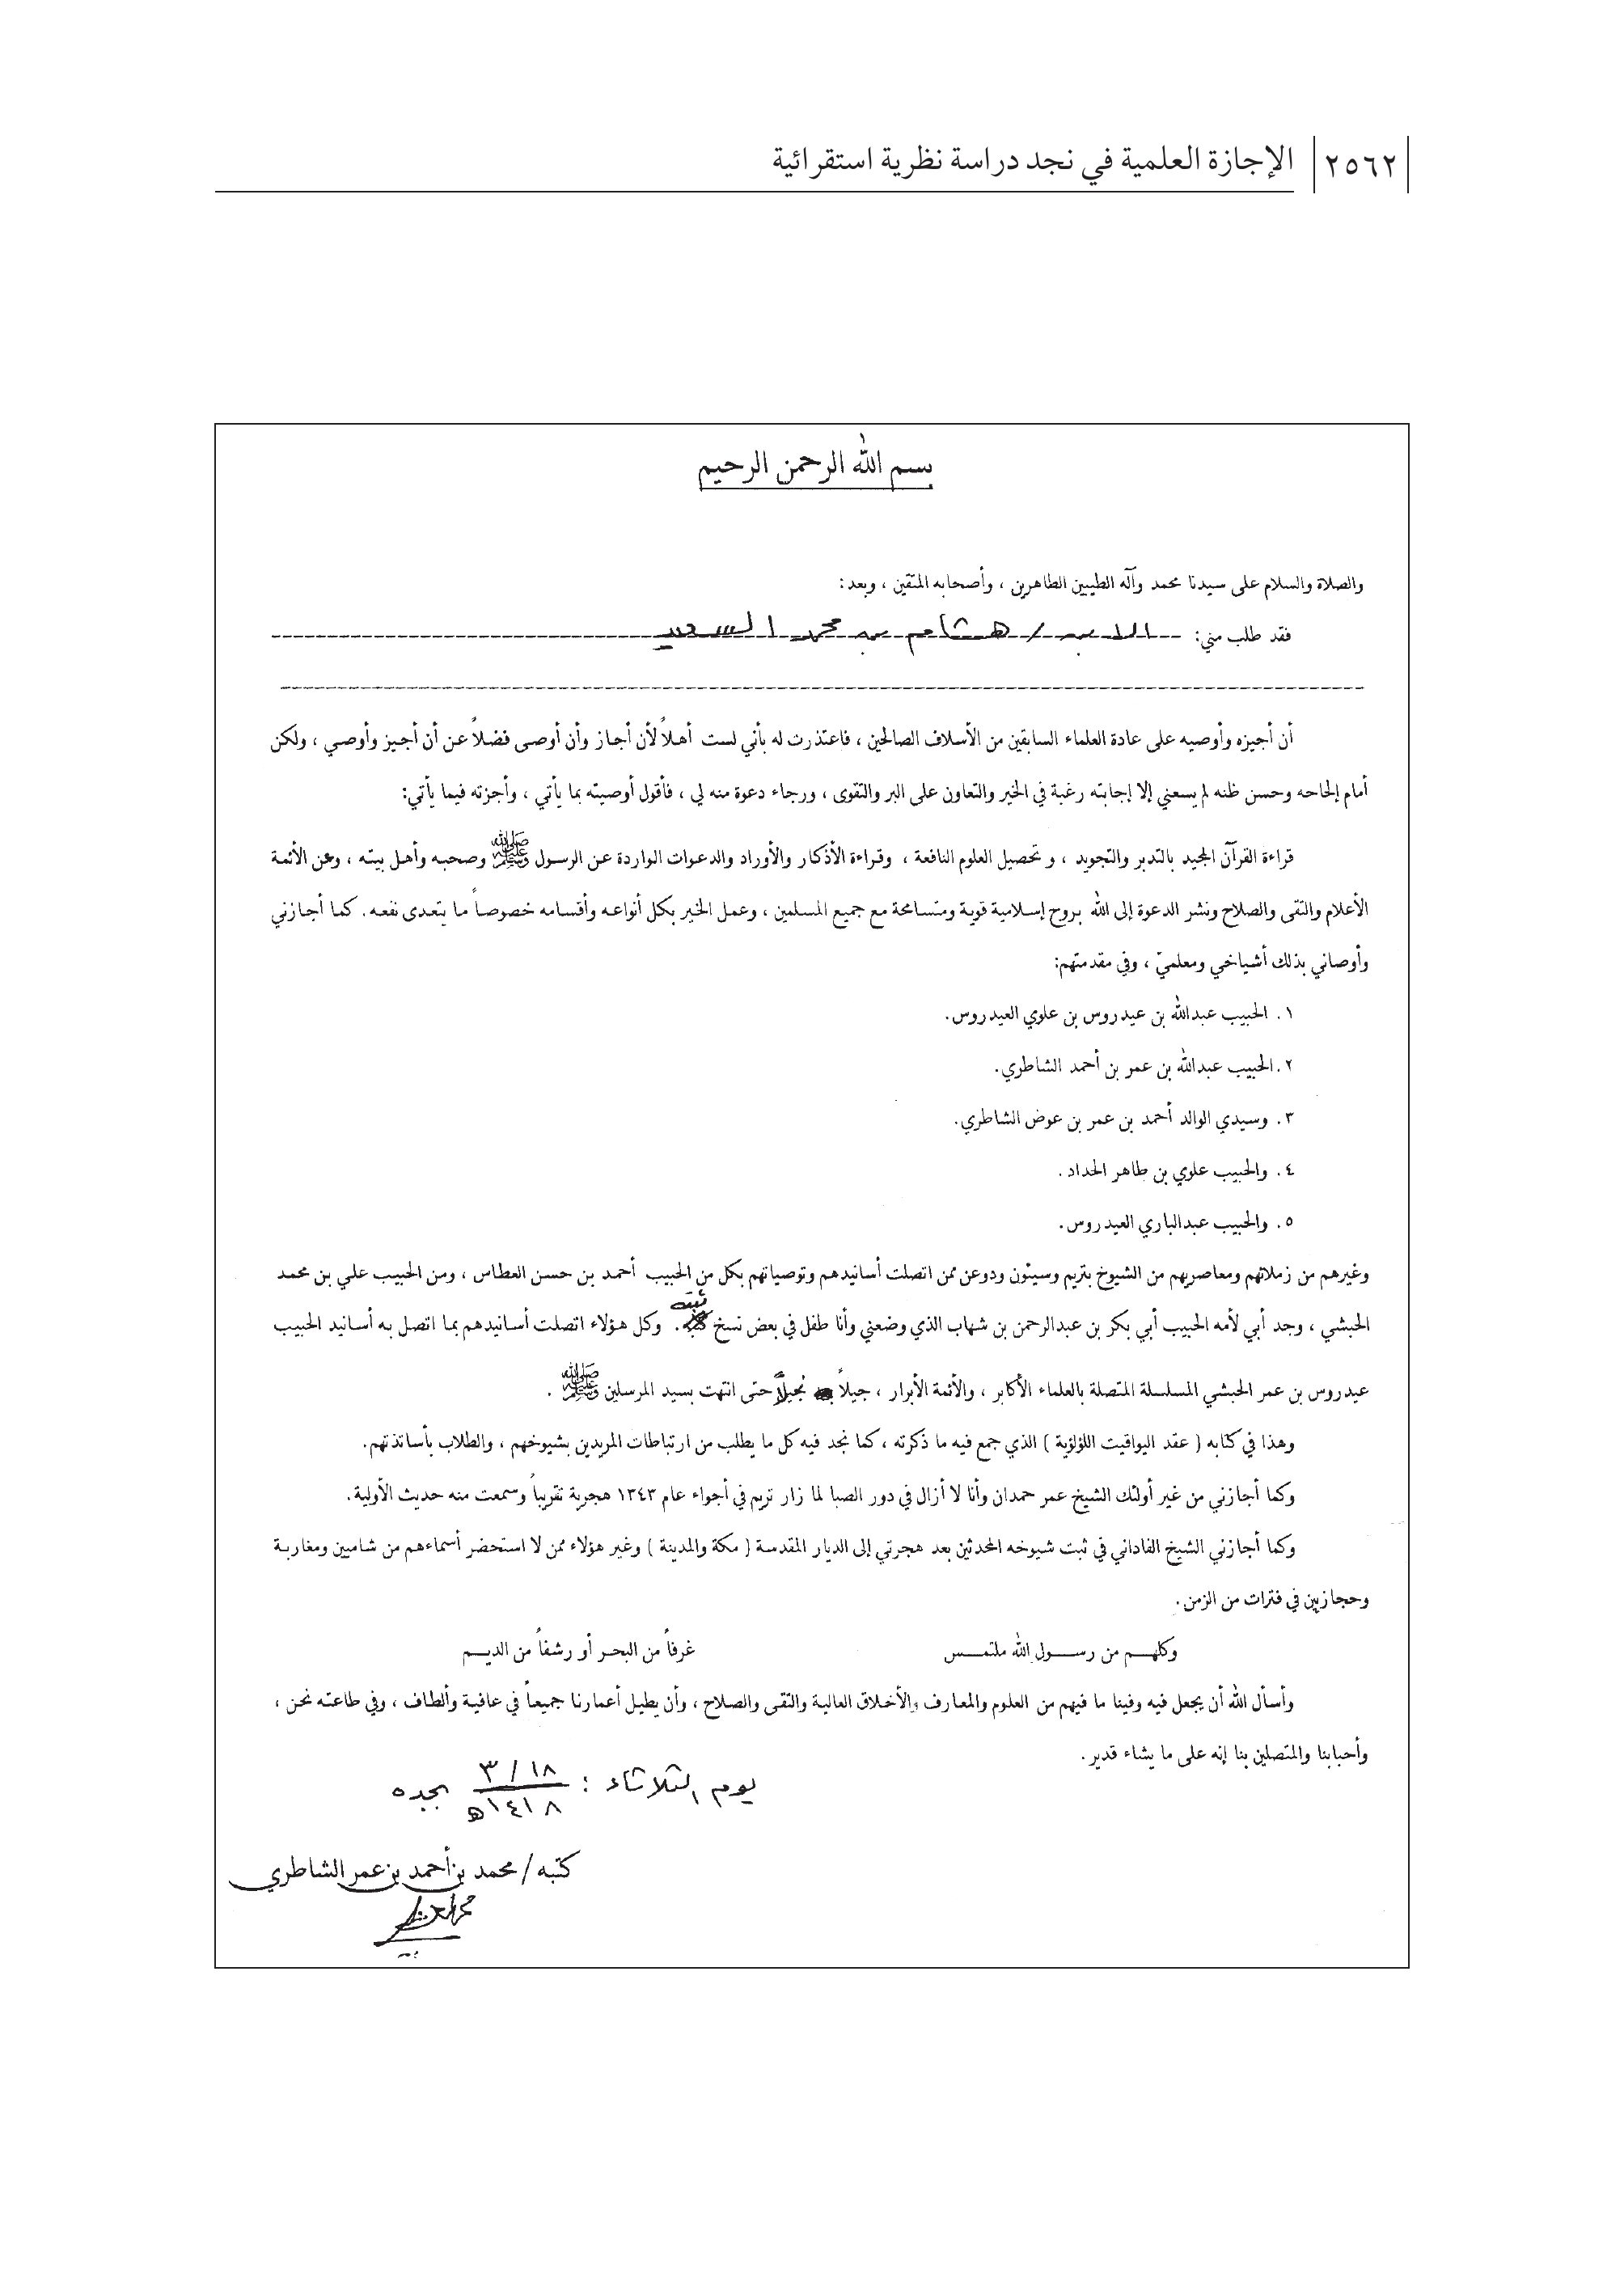 ٢٥٦٢ الإجازة العلمية في نجد دراسة نظرية استقرائية
بسم الله الرحمن الرحيم
والصلاة والسلام على سيدنا محمد وآله الطيبين الطاهرين ، وأصحابه المتقين ، وبعد:
فقد طلب مني: الابن / هشام بن محمد السعيد
أن أجيزه وأوصيه على عادة العلماء السابقين من الأسلاف الصالحين ، فاعتذرت له بأني لست أهلاً لأن أجاز وأن أوصى فضلاً عن أن أجيز وأوصي ، ولكن
أمام إلحاحه وحسن ظنه لم يسعني إلا إجابته رغبة في الخير والتعاون على البر والتقوى ، ورجاء دعوة منه لي ، فأقول أوصيته بما يأتي ، وأجزته فيما يأتي:
قراءة القرآن المجيد بالتدبر والتجويد ، و تحصيل العلوم النافعة ، وقراءة الأذكار والأوراد والدعوات الواردة عن الرسول ﷺ وصحبه وأهل بيته ، وعن الأئمة
الأعلام والتقى والصلاح ونشر الدعوة إلى الله بروح إسلامية قوية ومتسامحة مع جميع المسلمين ، وعمل الخير بكل أنواعه وأقسامه خصوصاً ما يتعدى نفعه. كما أجازني
وأوصاني بذلك أشياخي ومعلميّ ، وفي مقدمتهم:
١. الحبيب عبدالله بن عيدروس بن علوي العيدروس.
٢. الحبيب عبدالله بن عمر بن أحمد الشاطري.
٣. وسيدي الوالد أحمد بن عمر بن عوض الشاطري.
٤. والحبيب علوي بن طاهر الحداد .
٥. والحبيب عبدالباري العيدروس.
وغيرهم من زملائهم ومعاصريهم من الشيوخ بتريم وسيئون ودوعن ممن اتصلت أسانيدهم وتوصياتهم بكل من الحبيب أحمد بن حسن العطاس ، ومن الحبيب علي بن محمد
الحبشي ، وجد أبي لأمه الحبيب أبي بكر بن عبدالرحمن بن شهاب الذي وضعني وأنا طفل في بعض نسخ ثبته. وكل هؤلاء اتصلت أسانيدهم بما اتصل به أسانيد الحبيب
عيدروس بن عمر الحبشي المسلسلة المتصلة بالعلماء الأكابر ، والأئمة الأبرار ، جيلاً فجيلاً حتى انتهت بسيد المرسلين ﷺ .
وهذا في كتابه ( عقد اليواقيت اللؤلؤية ) الذي جمع فيه ما ذكرته ، كما نجد فيه كل ما يطلب من ارتباطات المريدين بشيوخهم ، والطلاب بأساتذتهم.
وكما أجازني من غير أولئك الشيخ عمر حمدان وأنا لا أزال في دور الصبا لما زار تريم في أجواء عام ١٣٤٣ هجرية تقريباً وسمعت منه حديث الأولية.
وكما أجازني الشيخ الفاداني في ثبت شيوخه المحدثين بعد هجرتي إلى الديار المقدسة ( مكة والمدينة ) وغير هؤلاء ممن لا استحضر أسماءهم من شاميين ومغاربة
وحجازيين في فترات من الزمن.
وكلهم من رسول الله ملتمس غرفاً من البحر أو رشفاً من الديم
وأسأل الله أن يجعل فيه وفينا ما فيهم من العلوم والمعارف والأخلاق العالية والتقى والصلاح ، وأن يطيل أعمارنا جميعاً في عافية وألطاف ، وفي طاعته نحن ،
وأحبابنا والمتصلين بنا إنه على ما يشاء قدير.
يوم الثلاثاء : ١٨ / ٣ بجده
١٤١٨هـ
كتبه / محمد بن أحمد بن عمر الشاطري